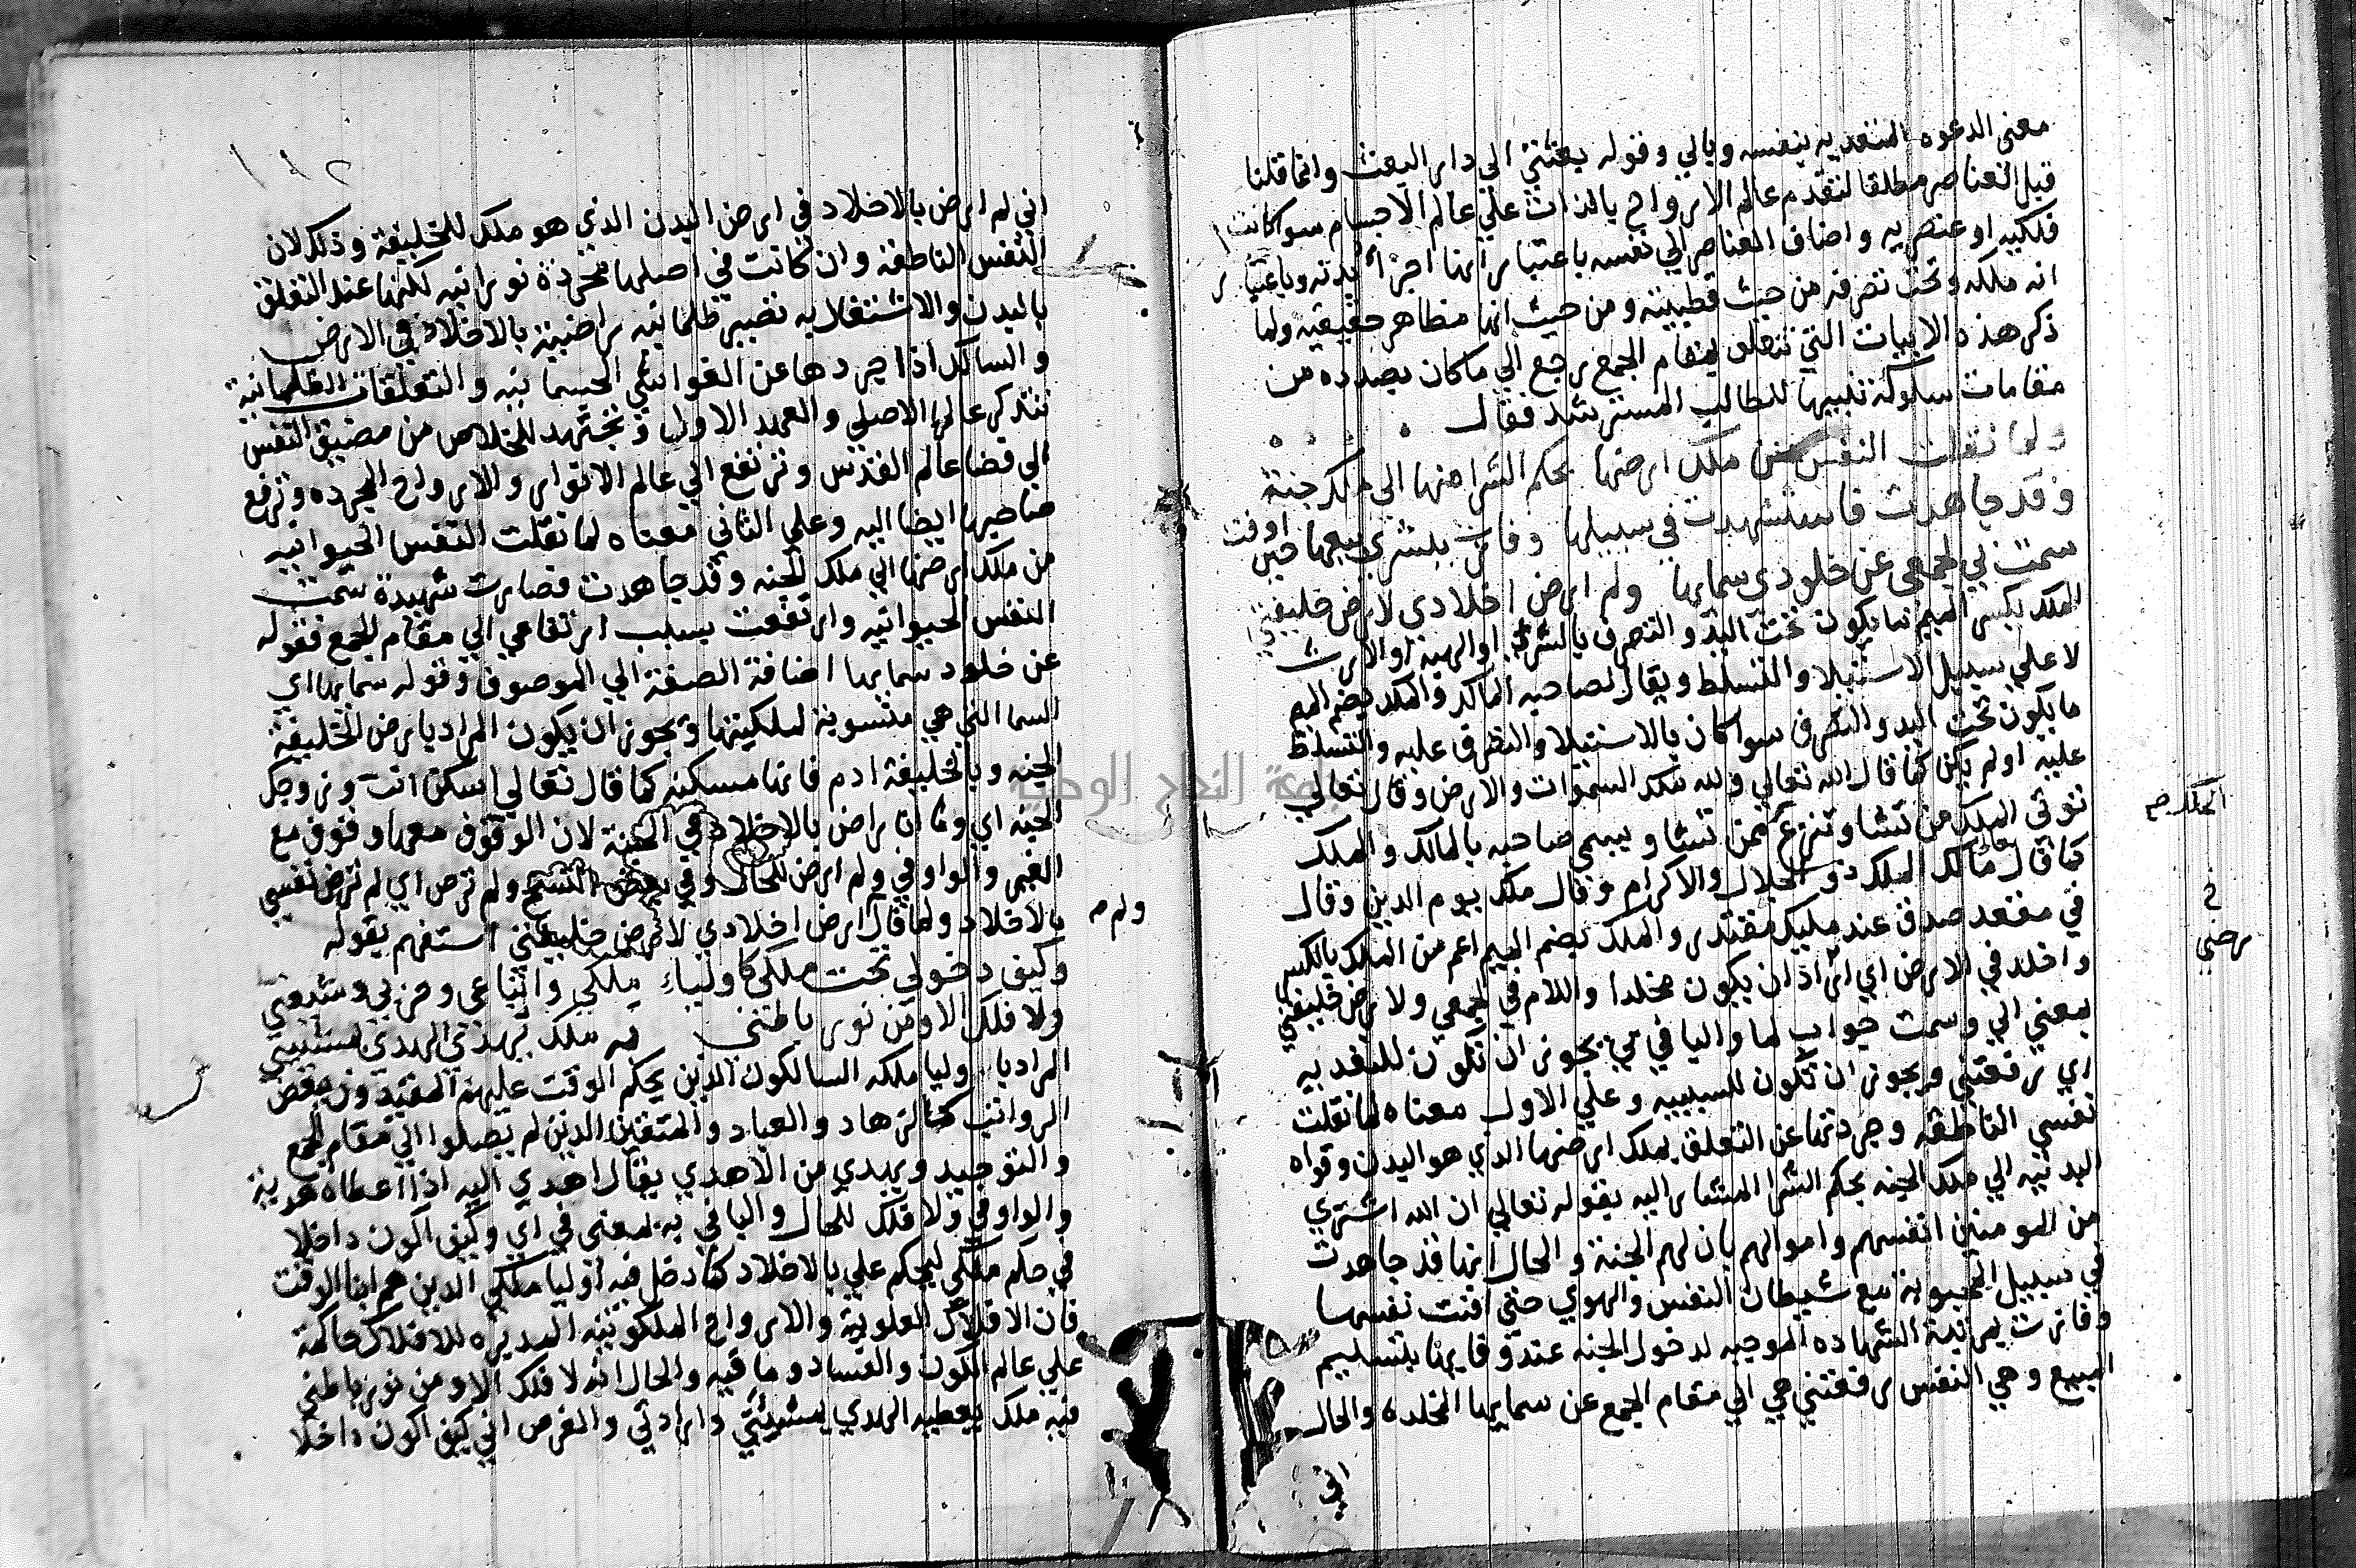 معنى الدعوه المتعديه بنفسه وبالي وقوله بعثتي الى دار البعث وانما قلنا
قبل العناصر مطلقا لتقدم عالم الارواح بالذات علي عالم الاجسام سوا كانت
فلكيه او عنصريه واضاف العناصر الي نفسه باعتبار انها اجزا بدنه وباعتبار
انه ملكه وتحت تصرفه من حيث قطبيته ومن حيث انها مظاهر حقيقيه ولما
ذكر هذه الابيات التي تتعلق بمقام الجمع رجع الي ما كان بصدده من
مقامات سلوكه تنبيها للطالب المسترشد فقال
ولما نقلت النفس من ملك ارضها بحكم الشرا منها الى ملك جنة
وقد جاهدت فاستشهدت في سبيلها وفازت ببشرى بيعها حين اوفت
سمت بي لجمعي عن خلودي سمايها ولم ارض اخلادي لارض خليفتي
الملك بكسر الميم ما يكون تحت اليد والتصرف بالشري او الهبة او الارث
لا علي سبيل الاستيلا والتسلط ويقال لصاحبه المالك والملك بضم الميم
ما يكون تحت اليد والتصرف سوا كان بالاستيلا والتصرف عليه والتسلط
عليه او لم يكن كما قال الله تعالي ولله ملك السموات والارض وقال تعالي
توتي الملك من تشا وتنزع ممن تشا ويسمي صاحبه بالمالك والملك
كما قال تعالى مالك الملك ذو الجلال والاكرام وقال ملك يوم الدين وقال
في مقعد صدق عند مليك مقتدر والملك بضم الميم اعم من الملك بالكسر
واخلد في الارض اي اراد ان يكون مخلدا واللام في لجمعي ولارض خليفتي
بمعني الي وسمت جواب لما واليا في بي يجوز ان تكون للتعديه
اي رفعتني ويجوز ان تكون للسببيه وعلي الاول معناه لما نقلت
نفسي الناطقه وجردتها عن التعلق بملك ارضها الذي هو البدن وقواه
البدنيه الي ملك الجنه بحكم الشرا المشار اليه بقوله تعالي ان الله اشتري
من المومنين انفسهم واموالهم بان لهم الجنة والحال انها قد جاهدت
في سبيل المحبوبه مع شيطان النفس والهوي حتي افنت نفسها
وفازت بمرتبة الشهاده الموجبه لدخول الجنه عند وفايها بتسليم
المبيع وهي النفس رفعتني هي الي مقام الجمع عن سمايها المخلده والحال
اني
الملك صح
خ
رضي
١١٢
اني لم ارض بالاخلاد في ارض البدن الذي هو ملك للخليفة وذلك لان
النفس الناطقه وان كانت في اصلها مجردة نورانيه لكنها عند التعلق
بالبدن والاشتغال به تصير ظلمانيه راضية بالاخلاد في الارض
والسالك اذا جردها عن الغواشي الجسمانيه والتعلقات الظلمانية
تتذكر عالمها الاصلي والعهد الاول وتجتهد للخلاص من مضيق النفس
الي فضا عالم القدس وترتفع الي عالم الانوار والارواح المجرده وترفع
صاحبها ايضا اليه وعلي الثاني معناه لما نقلت النفس الحيوانيه
من ملك ارضها الي ملك الجنه وقد جاهدت فصارت شهيدة سمت
النفس الحيوانيه وارتفعت بسبب ارتفاعي الي مقام الجمع فقوله
عن خلود سمايها اضافة الصفة الي الموصوف وقوله سمايها اي
السما التي هي منسوبة لملكيتها ويجوز ان يكون المراد بارض الخليفة
الجنه وبالخليفة ادم فانها مسكنه كما قال تعالي اسكن انت وزوجك
الجنه اي وما انا براض بالاخلاد في الجنة لان الوقوف معها وقوف مع
الغير والواو في ولم ارض للحال وفي بعض النسخ ولم ترض اي لم ترض نفسي
بالاخلاد ولما قال ولم ارض اخلادي لارض خليفتي استفهم بقوله
ولم صح
وكيف دخولي تحت ملكي كاولياء ملكي واتباعي وحزبي وشيعتي
ولا فلك الا ومن نور باطني به ملك يهدي الهدي بمشيتي
المراد باوليا ملكه السالكون الذين يحكم الوقت عليهم المقيدون ببعض
الرواتب كالزهاد والعباد والمتقين الذين لم يصلوا الي مقام الجمع
والتوحيد ويهدي من الاهدي يقال اهدي اليه اذا اعطاه هدية
والواو في ولا فلك للحال واليا في به بمعنى في اي وكيف اكون داخلا
في حكم ملكي ليحكم علي بالاخلاد كما دخل فيه اوليا ملكي الذين هم ابنا الوقت
فان الافلاك العلوية والارواح الملكوتيه المديره للافلاك حاكمة
علي عالم الكون والفساد وما فيه والحال انه لا فلك الا ومن نور باطني
فيه ملك يعطيه الهدي بمشيئتي وارادتي والغرض اني كيف اكون داخلا
جامعة النجاح الوطنية